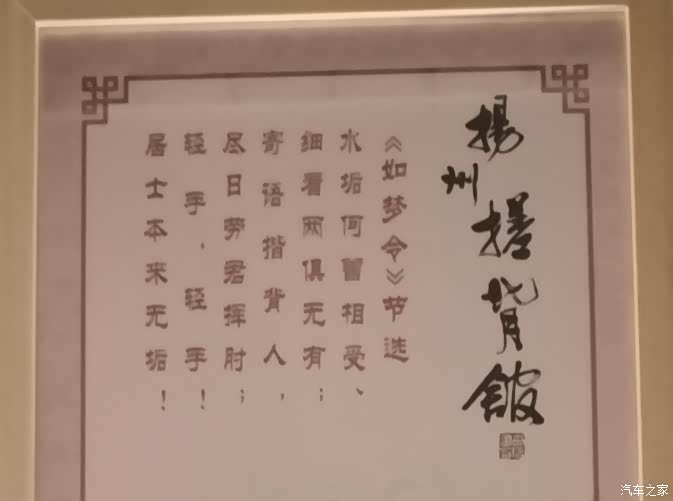 揚州搓背館
《如梦令》节选
水垢何曾相受、
细看两俱无有；
寄语揩背人，
尽日劳君挥肘；
轻手，轻手！
居士本来无垢！
汽车之家